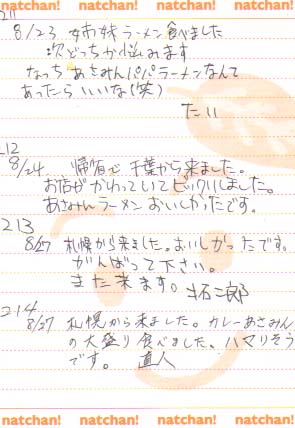 natchan! natchan! natchan! natchan!
211
8/23 姉妹ラーメン食べました
次どっちか悩みます
なっち あさみんパパラーメンなんて
あったらいいな(笑)
たい
212
8/24 帰省で千葉から来ました。
お店がかわっていてビックリしました。
あさみんラーメンおいしかったです。
213
8/27 札幌から来ました。おいしかったです。
がんばって下さい。
また来ます。 二郎
214
8/27 札幌から来ました。カレーあさみん
の大盛り食べました。ハマりそう
です。 直人
natchan! natchan! natchan! natchan!